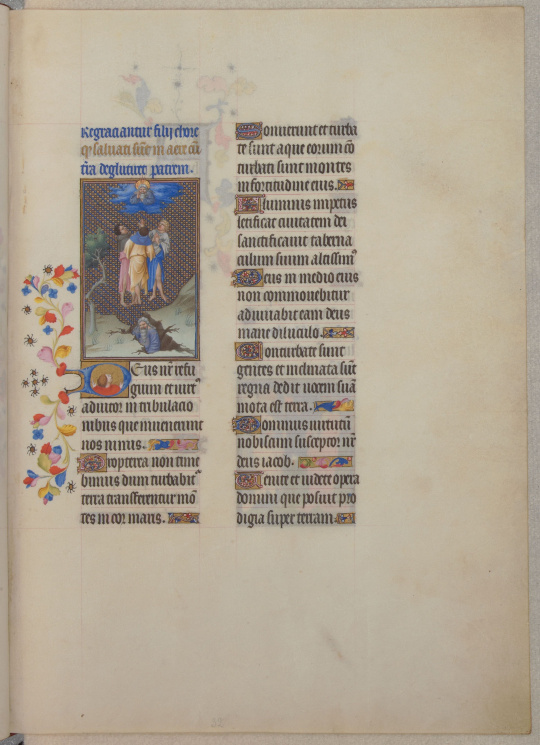 Regraciantur filij chore
q̄ saluati sūt in aere cū
tr̄a deglutiret patrem.
Deus nr̄ refu
gium et uirt᷒
adiutor in tribulacio
nibus que inuenerunt
nos nimis.
Propterea non time
bimus dum turbabit᷒
terra et transferentur mō
tes in cor maris.
Sonuerunt et turba
te sunt aque eorum cō
turbati sunt montes
in fortitudine eius.
Fluminis impetus
letificat ciuitatem dei
sanctificauit taberna
culum suum altissim᷒
Deus in medio eius
non commouebitur
adiuuabit eam deus
mane diluculo.
Conturbate sunt
gentes et inclinata sūt
regna dedit uocem suā
mota est terra.
Dominus uirtutū
nobiscum susceptor nr̄
deus iacob.
Uenite et uidete opera
domini que posuit pro
digia super terram.